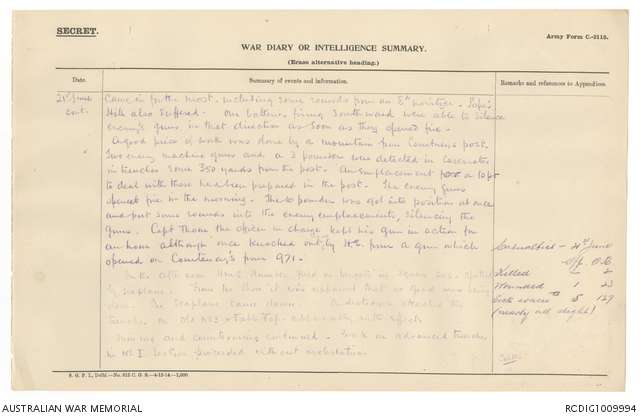 SECRET.
Army Form C.-2118.
WAR DIARY OR INTELLIGENCE SUMMARY.
(Erase alternative heading.)
Date.
Summary of events and information.
Remarks and references to Appendices.
21st June
cont.
came in for the most, including some rounds from an 8" position. Pope's
Hill also suffered. Our batteries firing Southward were able to silence
enemy's guns in that direction as soon as they opened fire.
A good piece of work was done by a mountain gun Courtney's post.
Two enemy machine guns and a 3 pounder were detected in
in trenches some 350 yards from the post. An emplacement for a 10 pr
to deal with these had been prepared in the post. The enemy guns
opened fire in the morning. The 10 pounder was got into position at once
and put some rounds into the enemy emplacements, silencing the
guns. Capt Thom the officer in charge kept his gun in action for
an hour although once knocked out by H.E. from a gun which
opened on Courtney's from 971.
In the afternoon H.M.S. fired on
by Seaplane. From the shore it was apparent that no good was being
done. The Seaplane came down. A destroyer
trenches on Old No 3 & Tabletop
Mining and countermining continued. Work on advanced trenches
in No I Section proceeded without molestation.
Casualties - 21st June
Off. O.R.
Killed - 2
Wounded 1 23
Sick 5 127
(nearly all slight)
S. G. P. I., Delhi.—No. 815 C. G. S.—4-12-14—1,000.
AUSTRALIAN WAR MEMORIAL
RCDIG1009994